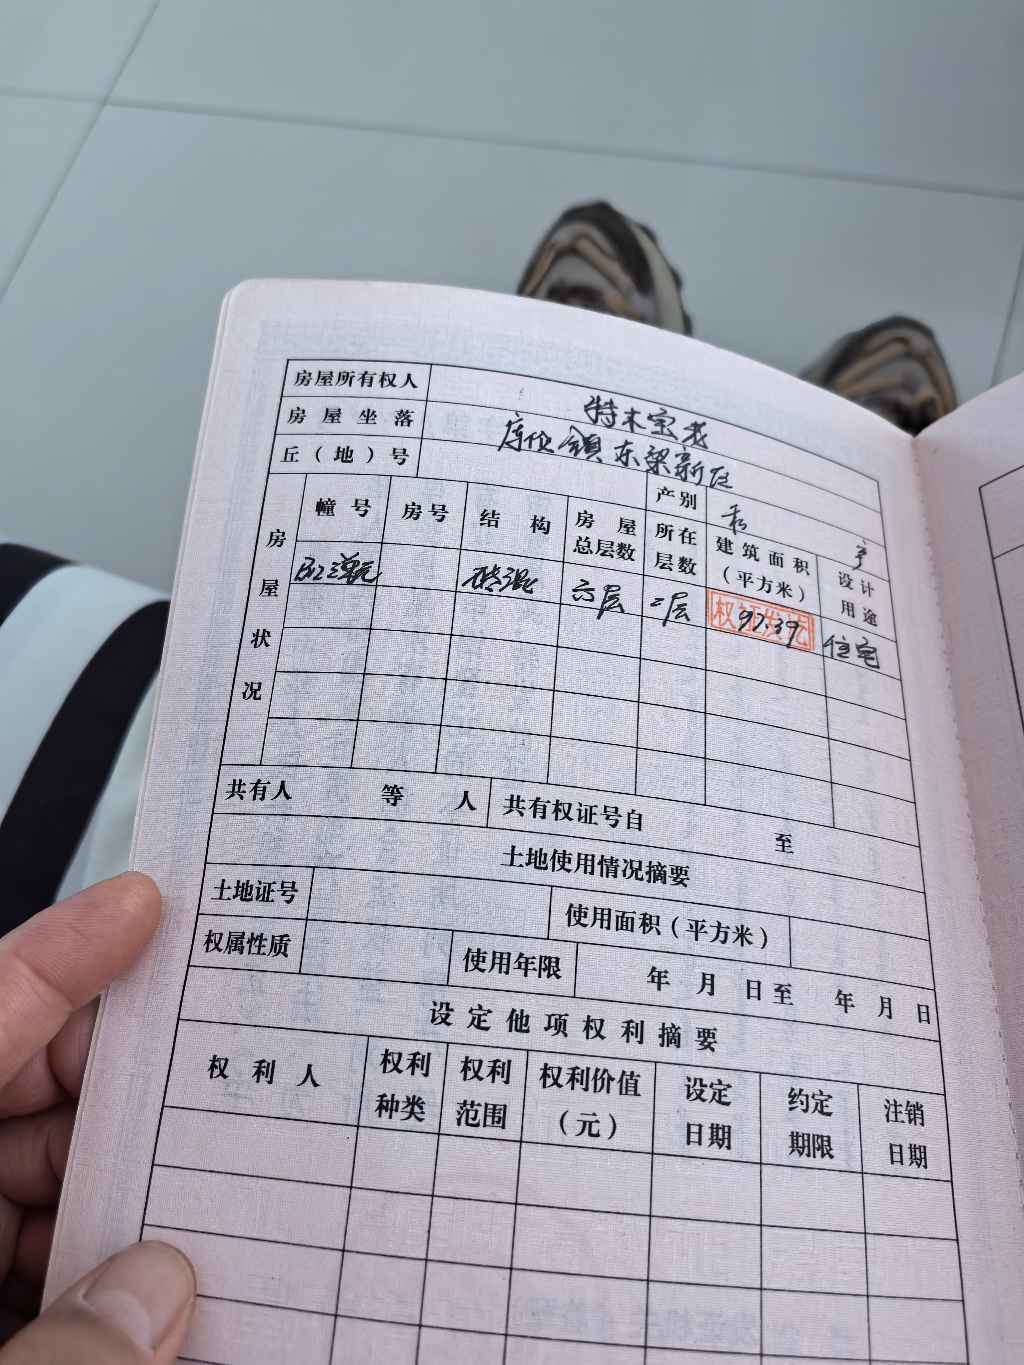 房屋所有权人 特木宝老
房屋坐落 库伦镇东梁新区
丘（地）号 产别 私 产
房屋状况
幢号 房号 结构 房屋总层数 所在层数 建筑面积（平方米） 设计用途
砖混 六层 二层 97.39 住宅
共有人 等 人 共有权证号自 至
土地使用情况摘要
土地证号 使用面积（平方米）
权属性质 使用年限 年 月 日至 年 月 日
设定他项权利摘要
权利人 权利种类 权利范围 权利价值（元） 设定日期 约定期限 注销日期